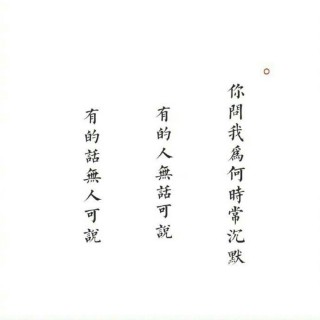 你問我爲何時常沉默
有的人無話可說
有的話無人可說